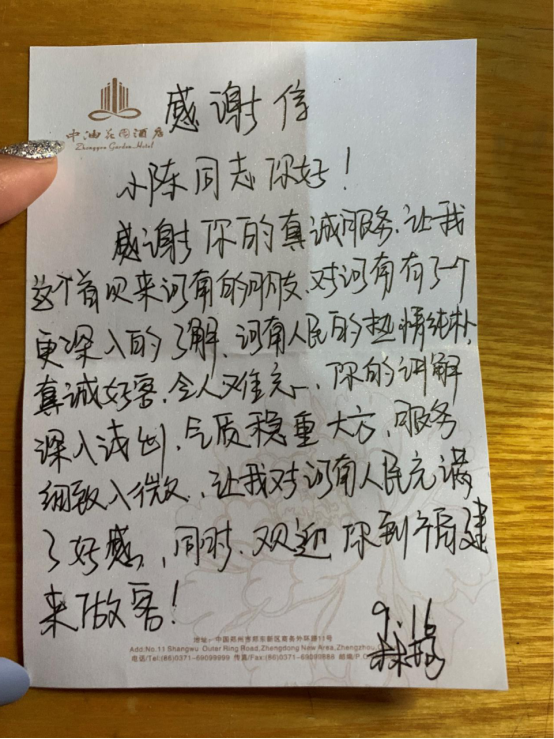 中油花园酒店
Zhongyou Garden Hotel
感谢信
小陈同志你好！
感谢你的真诚服务、让我
这个首次来河南的朋友、对河南有了一个
更深入的了解、河南人民的热情纯朴、
真诚好客、令人难忘、你的讲解
深入浅出、气质稳重大方、服务
细致入微、让我对河南人民充满
了好感、同时、欢迎你到福建
来做客！
9.16
地址：中国郑州市郑东新区商务外环路11号
Add:No.11 Shangwu Outer Ring Road,Zhengdong New Area,Zhengzhou
电话/Tel:(86)0371-69099999 传真/Fax:(86)0371-69090888 邮编/P.C